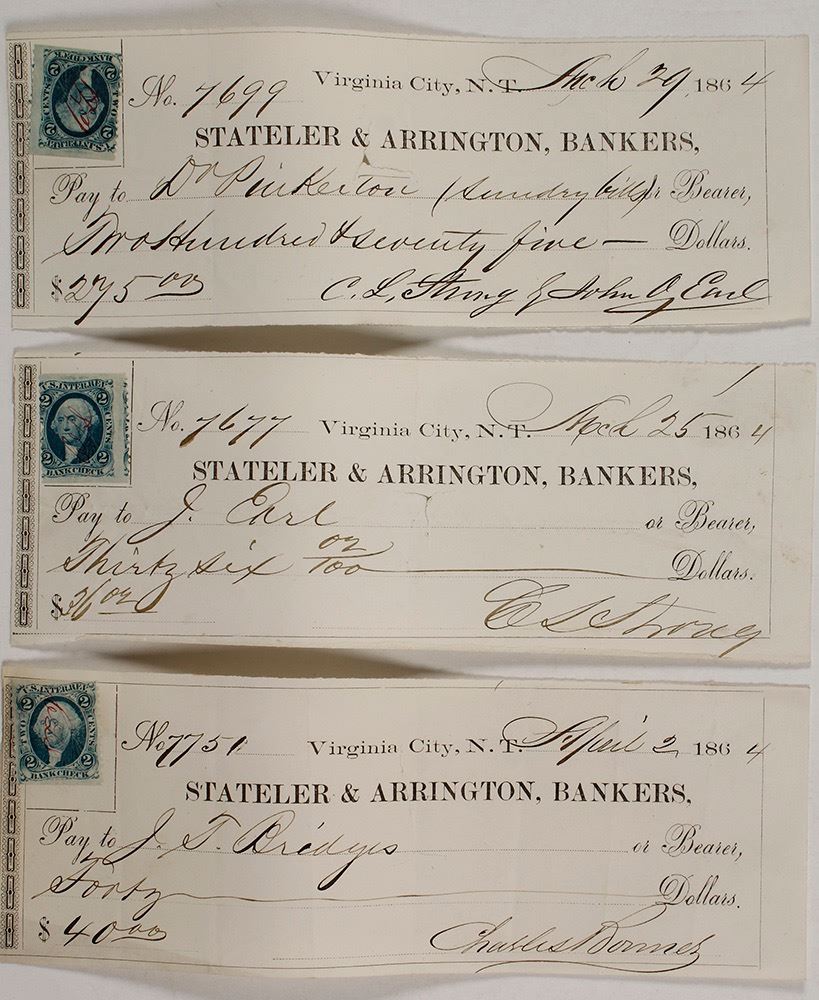 U.S. INTER. REV.
2 2
TWO CENTS
2 2
BANK CHECK
No. 7699 Virginia City, N.T. Mch 29 1864
STATELER & ARRINGTON, BANKERS,
Pay to Dr Pinkerton (sundry bills) or Bearer,
Two Hundred & seventy five — Dollars.
$275 00 C. L. Strong & John O. Earl
U.S. INTER. REV.
2 2
CENTS
2 2
BANK CHECK
No. 7677 Virginia City, N.T. Mch 25 1864
STATELER & ARRINGTON, BANKERS,
Pay to J. Earl or Bearer,
Thirty six 00/100 Dollars.
$36 00 C L Strong
U.S. INTER. REV.
2 2
TWO CENTS
2 2
BANK CHECK
No. 7751 Virginia City, N.T. April 2 1864
STATELER & ARRINGTON, BANKERS,
Pay to J. T. Bridges or Bearer,
Forty Dollars.
$40 00 Charles Bonner